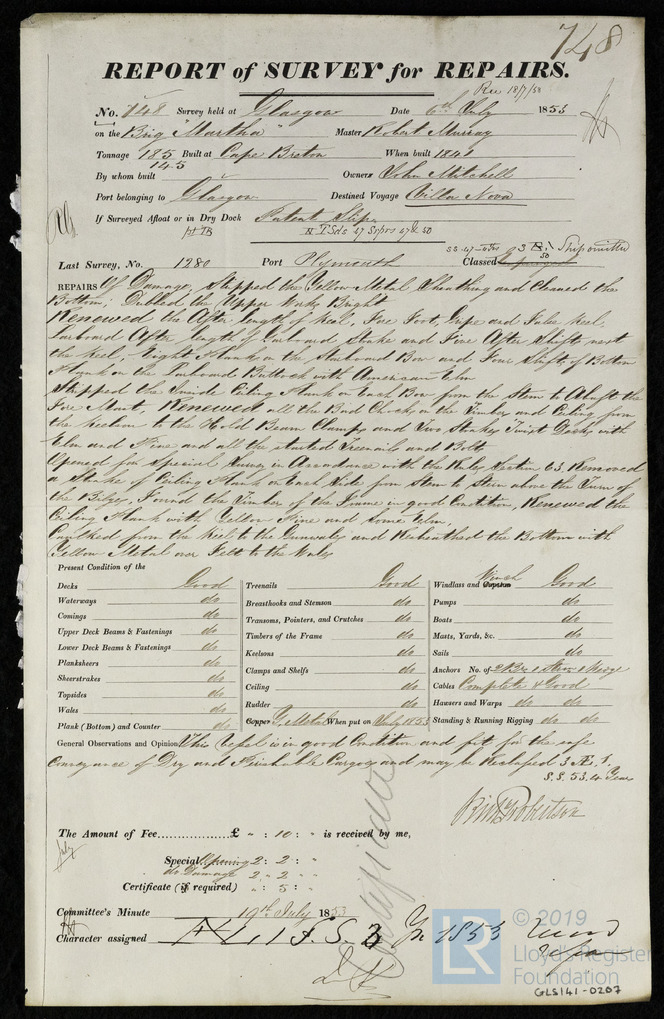 748
REPORT of SURVEY for REPAIRS.
Rec 18/7/53
No. 748 Survey held at Glasgow Date 6th July 1853
on the Brig "Martha" Master Robert Murray
Tonnage 185 Built at Cape Breton When built 1841
145
By whom built Owners John Mitchell
Port belonging to Glasgow Destined Voyage Villa Nova
If Surveyed Afloat or in Dry Dock Patent Slip
Last Survey, No. 1280 Port Plymouth Classed
REPAIRS Of Damage, Stripped the Yellow Metal Sheathing and Cleaned the
Bottom, Dubbed the Upper Works Bright
Renewed the After length of Keel, Fore Foot, Gripe and False Keel,
Larboard After length of Garboard Strake and Five After Shifts next
the Keel, Eight Plank on the Starboard Bow and Four Shifts of Bottom
Plank on the Larboard Buttock with American Elm
Stripped the Inside Ceiling Plank on Each Bow from the Stem to Abaft the
Fore Mast Renewed all the Bad Chocks on the Timbers and Ceiling from
the Keelson to the Hold Beam Clamps and Two Strakes Twixt Decks with
Elm and Pine and all the started Treenails and Bolts
Opened for Special Survey in Accordance with the Rules Section 63. Removed
a Strake of Ceiling Plank on Each Side from Stem to Stern above the Turn of
the Bilges, Found the Timbers of the Frame in good Condition, Renewed the
Ceiling Plank with Yellow Pine and some Elm,
Caulked from the Keel to the Gunwales and Resheathed the Bottom with
Yellow Metal over Felt to the Wales
Present Condition of the
Decks Good
Waterways do
Comings do
Upper Deck Beams & Fastenings do
Lower Deck Beams & Fastenings do
Planksheers do
Sheerstrakes do
Topsides do
Wales do
Plank (Bottom) and Counter do
Treenails Good
Breasthooks and Stemson do
Transoms, Pointers, and Crutches do
Timbers of the Frame do
Keelsons do
Clamps and Shelfs do
Ceiling do
Rudder do
Copper Y. Metal When put on July 1853
Windlass and Capstan Winch Good
Pumps do
Boats do
Masts, Yards, &c. do
Sails do
Anchors No. of 2 Br 1 Strm 1 Kedge
Cables Complete & Good
Hawsers and Warps do do
Standing & Running Rigging do do
General Observations and Opinion This Vessel is in good Condition and fit for the safe
Conveyance of Dry and Perishable Cargoes and may be Reclassed 3 Æ 1.
S.S. 53. 4 Years
Robertson
The Amount of Fee £ " : 10 : " is received by me,
July
Special Opening 2 : 2 : "
do Damage 2 : 2 "
Certificate (if required) " : 5 : "
Committee's Minute 19th July 1853
Character assigned
1853
© 2019
LR Lloyd's Register
Foundation
GLS141-0207